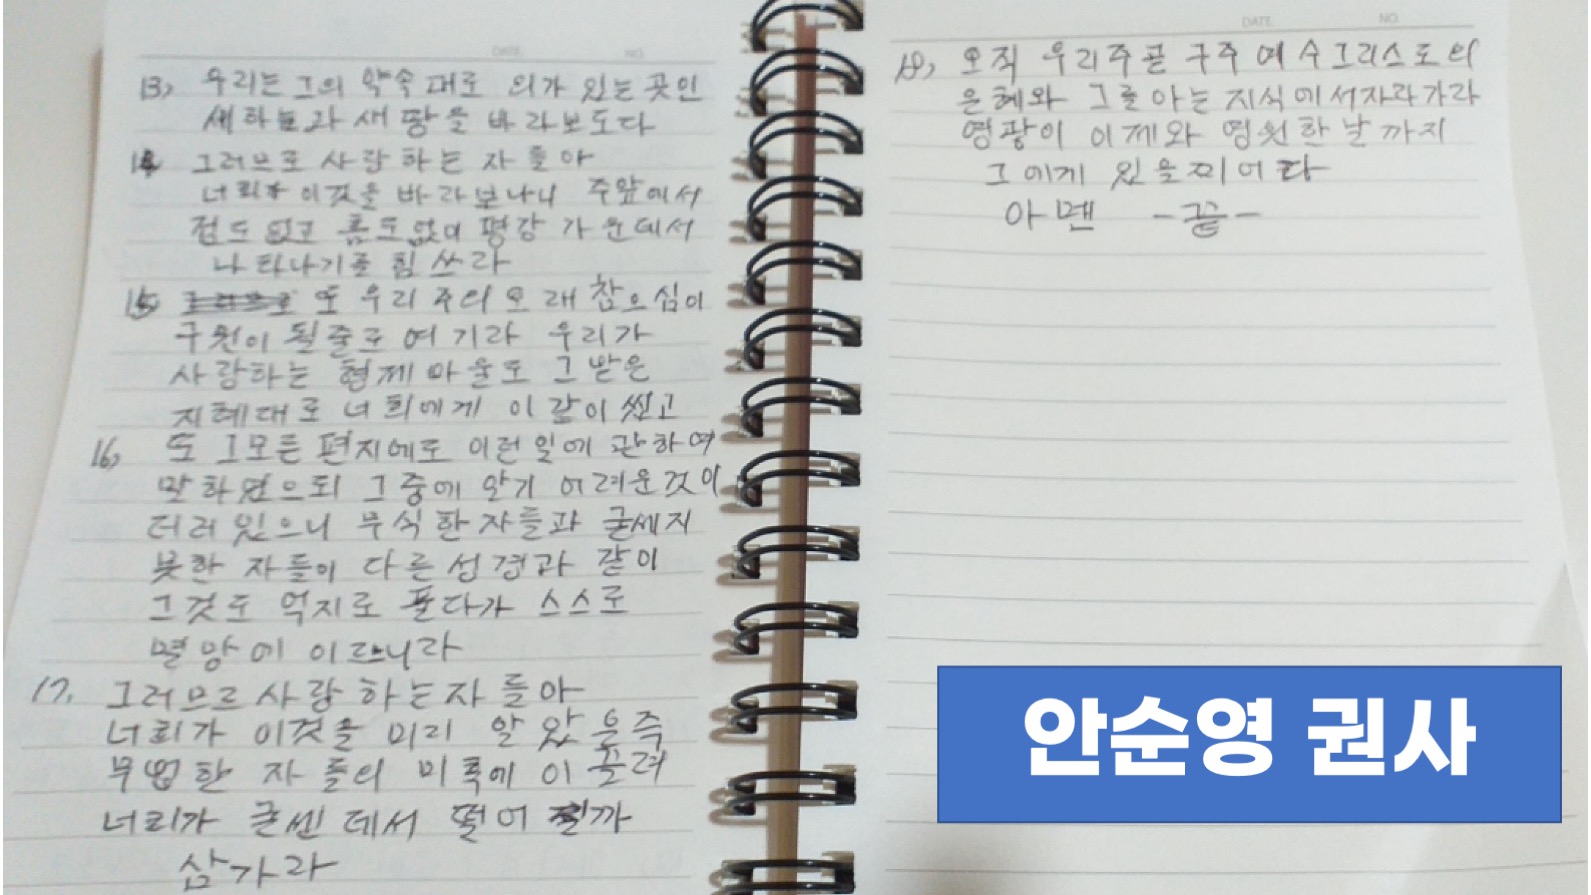 DATE. NO.
13, 우리는 그의 약속 대로 의가 있는 곳인
새하늘과 새 땅을 바라보도다
14 그러므로 사랑 하는 자 들아
너희가 이것을 바라보나니 주앞에서
점도 없고 흠도없이 평강 가운데서
나타나기를 힘 쓰라
15 또 우리 주의 오래 참으심이
구원이 될줄로 여기라 우리가
사랑하는 형제 바울도 그 받은
지혜대로 너희에게 이 같이 썼고
16, 또 그모든 편지에도 이런 일에 관하여
말하였으되 그중에 알기 어려운것이
더러 있으니 무식한자들과 굳세지
못한 자들이 다른 성경과 같이
그것도 억지로 풀다가 스스로
멸망에 이르니라
17, 그러므로 사랑 하는자 들아
너희가 이것을 미리 알 았 은즉
무법한 자 들의 미혹에 이끌려
너희가 굳센 데서 떨어 질까
삼가라
DATE. NO.
18, 오직 우리주곧 구주 예수그리스도의
은혜와 그를아는 지식에서자라가라
영광이 이제와 영원한날까지
그에게 있을찌어다
아멘 -끝-
안순영 권사